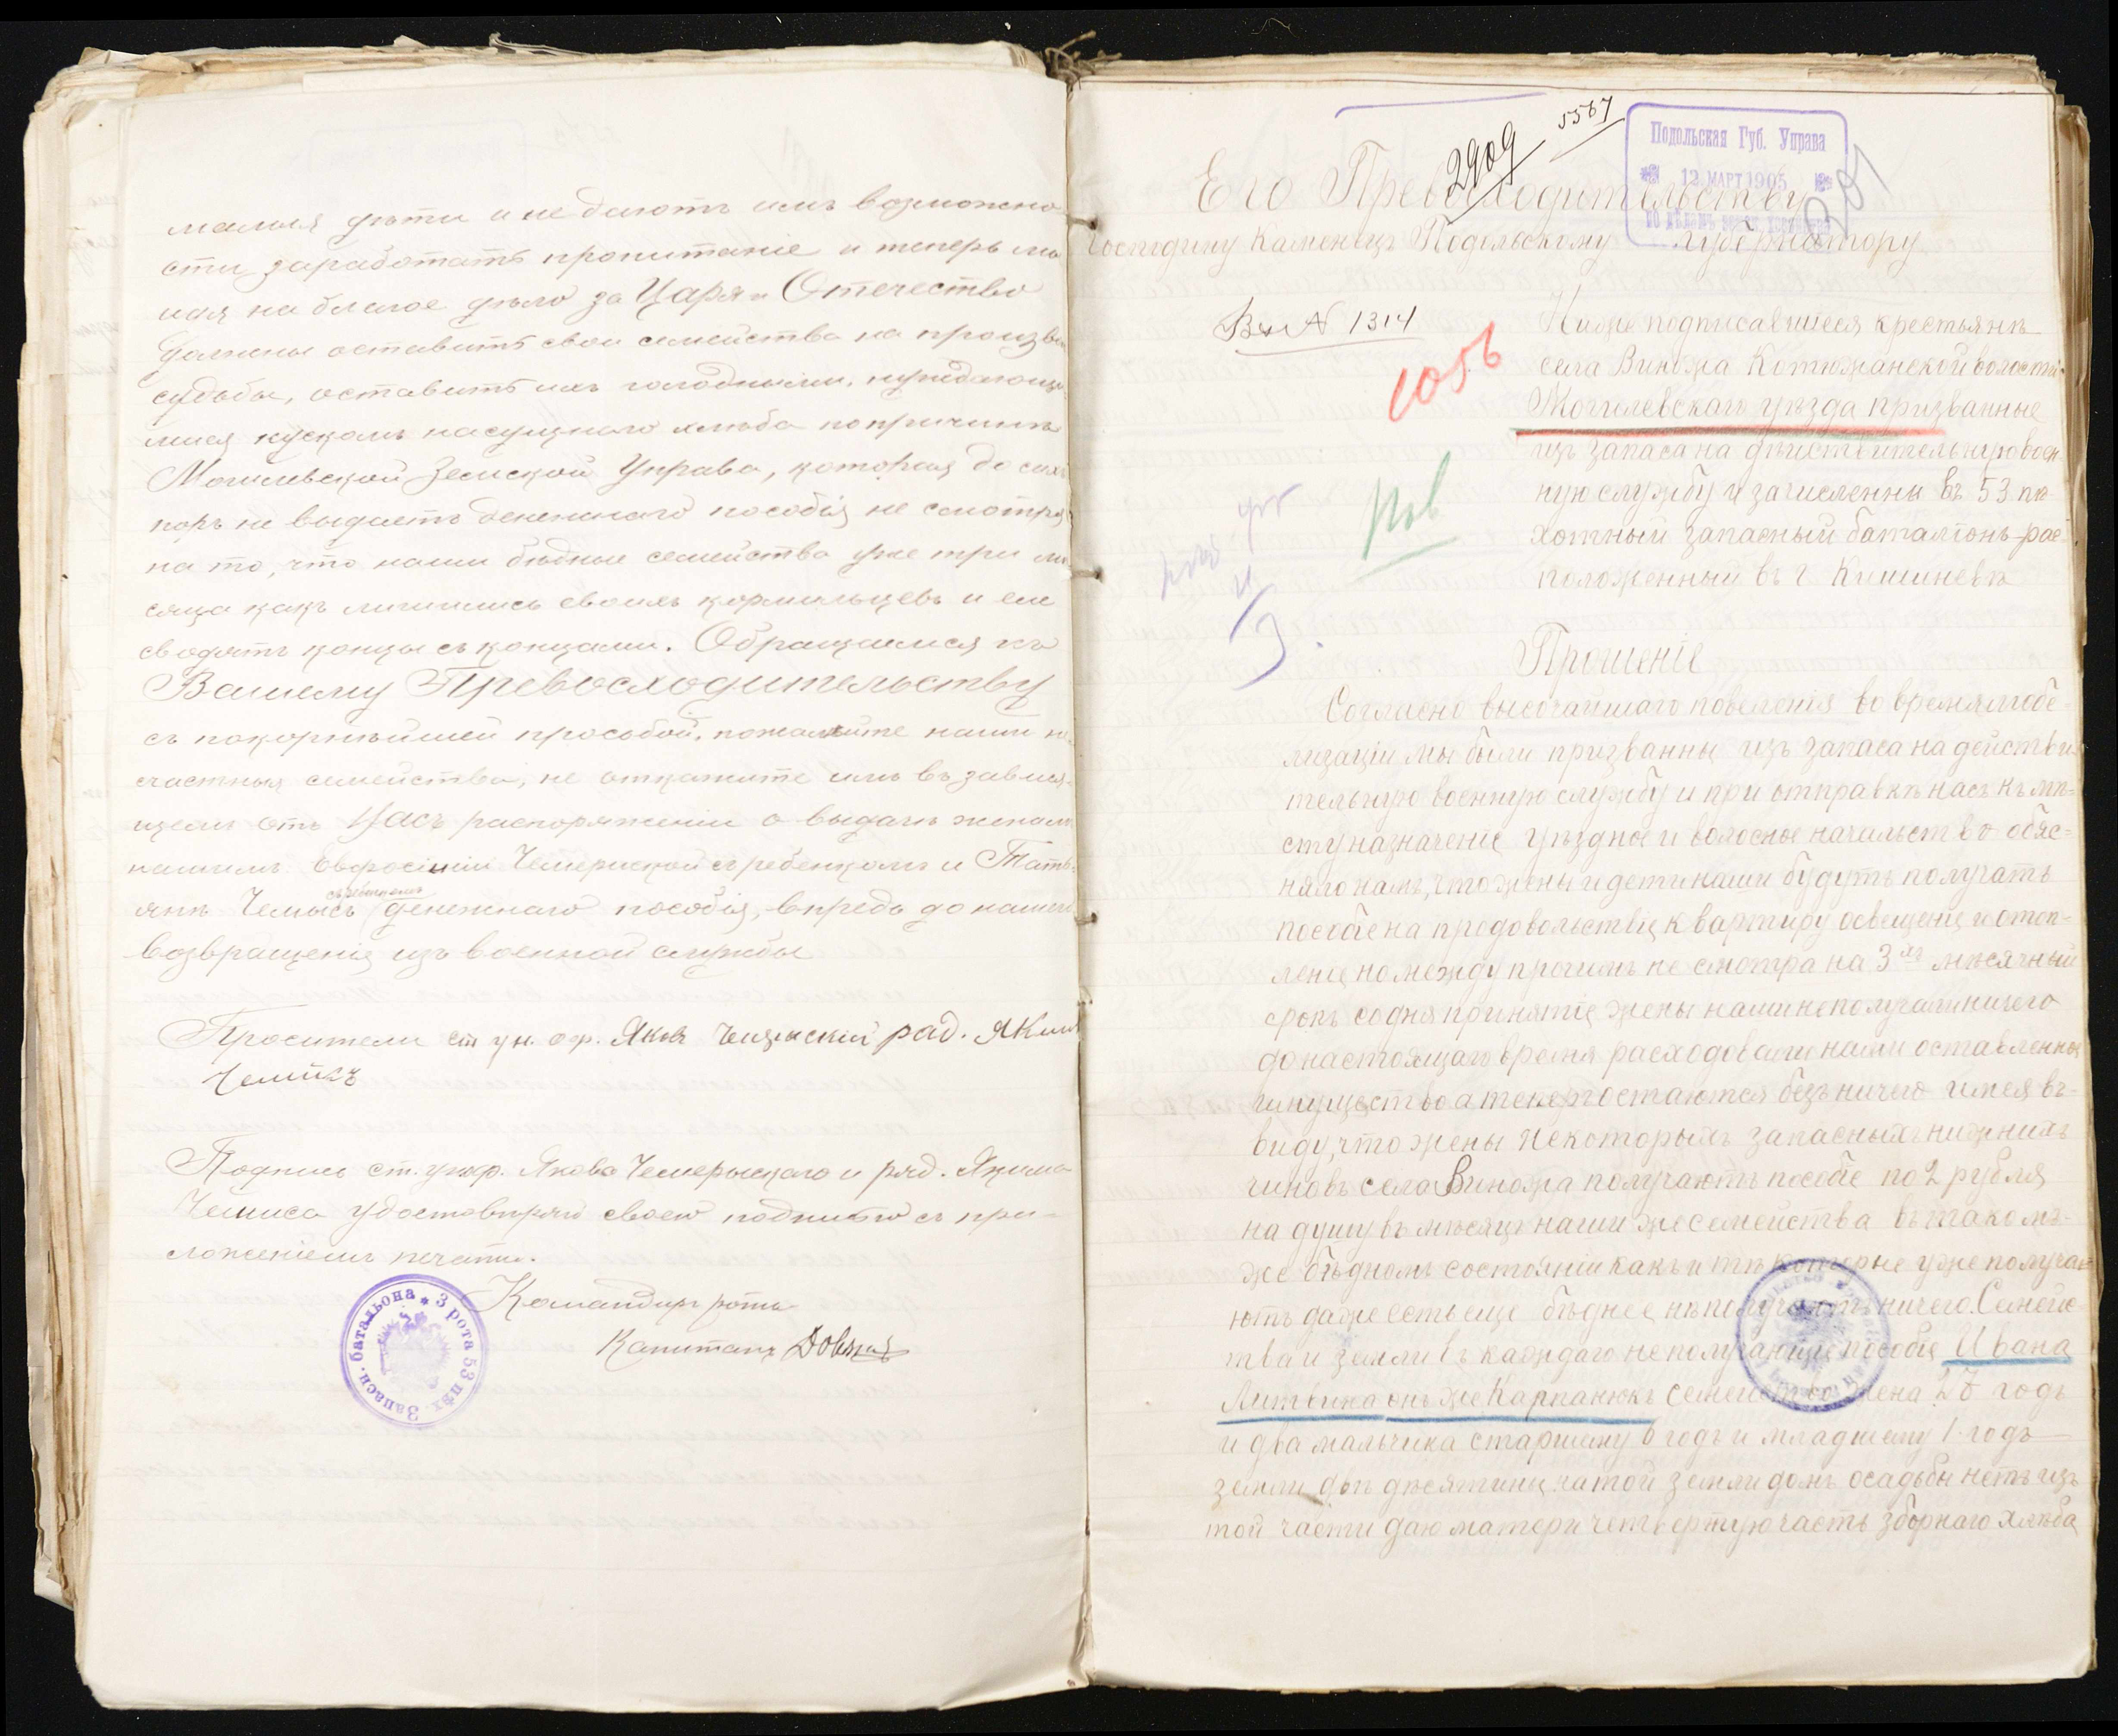 малыя дѣти и не даютъ имъ возможно
сти заработать пропитаніе и теперь
на благое дѣло за Царя и Отечество
должны оставить свои семейства на произво
судьбы, оставить ихъ голодными, нуждающи
мися кускомъ насущнаго хлѣба по причинѣ
Могилевской Земской Управы, которая до сихъ
поръ не выдаетъ денежнаго пособія не смотря
на то, что наши бѣдные семейства уже три мѣ
сяца какъ лишились своихъ кормильцевъ и еле
сводятъ концы съ концами. Обращаемся къ
Вашему Превосходительству
съ покорнѣйшей прособой, пожалѣйте наши не
счастныя семейства, не откажите имъ въ завися
щемъ отъ Васъ распоряженіи о выдачѣ женамъ
нашимъ Евфросініи Чемериской съ ребенкомъ и Тать
янѣ Чемысъ денежнаго пособія, впредь до нашего
съ ребенкомъ
возвращенія изъ военной службы
Просители ст ун. оф. Яковъ рад. Яким
Чемисъ
Подпись ст. унт. оф. Якова Чемерыскаго и ряд. Якима
Чемиса удостовѣряю своею подписью съ при-
ложеніемъ печати.
Командиръ роты
Капитанъ
3 рота 53 пѣх. Запасн. баталіона
2909 5567
Подольская Губ. Управа
12. МАРТ 1905
Его Превосходительству
Господину Каменецъ Подольскому Губернатору
Вх № 1314
Ниже подписавшиеся крестьянѣ
села Виножа Котюжанской волости
Могилевскаго уѣзда призванные
изъ запаса на дѣйствительную воен
ную службу и зачисленны въ 53 пѣ-
хотный запасный баталіонъ рас
положенный въ г Кишиневѣ
Прошеніе
Согласно высочайшаго повеленія во время мобе
лизаціи мы были призванны изъ запаса на действи
тельную военную службу и при отправкѣ насъ къ мѣ-
сту назначеніе уѣздное и волосное начальство обяс=
няло намъ, что жены и дети наши будутъ получать
пособіе на продовольствіе квартиру освещеніе и отоп=
леніе но между прочимъ не смотра на 3хъ мѣсячный
срокъ со дня принятіе жены наши неполучали ничего
до настоящаго время расходовали нами оставленны
имущество а теперъ остаются безъ ничего имея въ-
виду, что жены некоторыхъ запасныхъ нижнихъ
чиновъ села Виножа получаютъ пособіе по 2 рубля
на душу въ мѣсяцъ наши же семейства въ такомъ-
же бѣдномъ состояніи какъ и тѣ которые уже получа=
ютъ даже есть еще бѣднее нѣполучаютъ ничего. Семейс
тва и земли въ каждаго неполучающіе пособіе Ивана
Литвина онъ же Карпанюкъ семейство жена 28 годъ
и два мальчика старшему 6 годъ и младшему 1 годъ
земли двѣ десятины на той земли домъ осадьбы нетъ изъ
той части даю матери четвертую часть зборнаго хлѣба